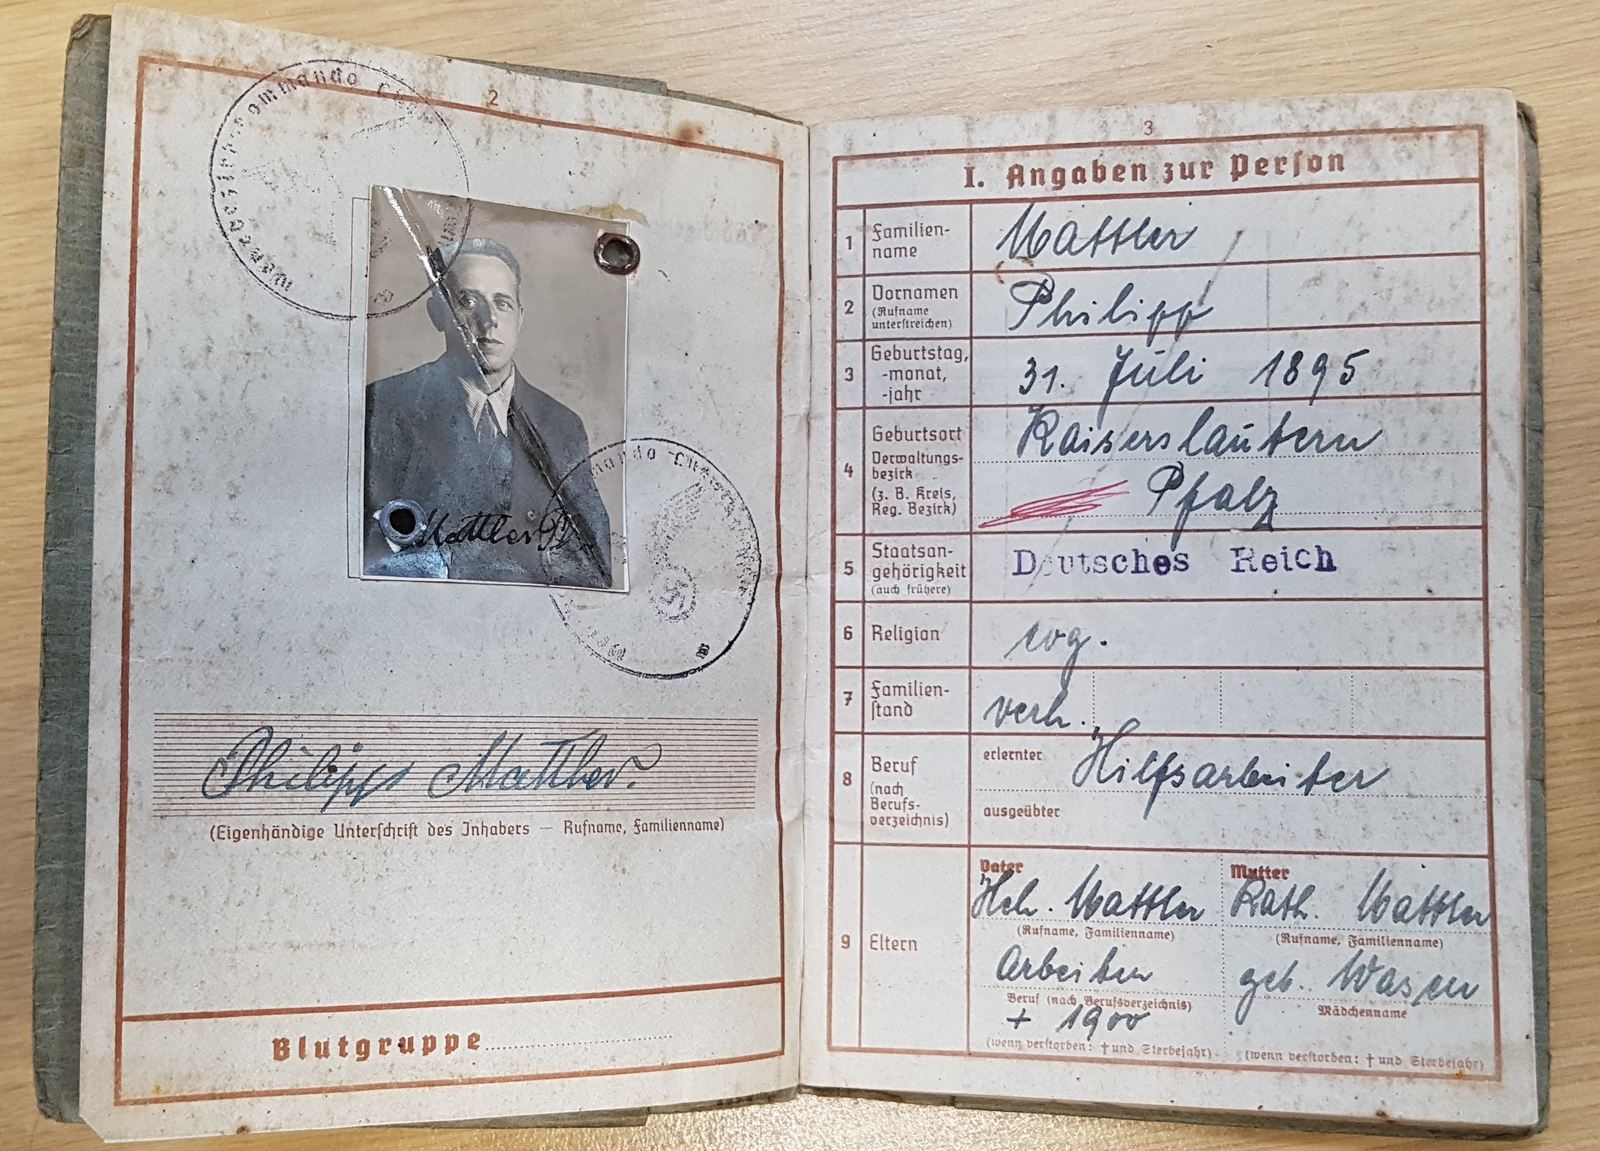 2
Mattler Ph.
Philipp Mattler.
(Eigenhändige Unterschrift des Inhabers — Rufname, Familienname)
Blutgruppe
3
I. Angaben zur Person
1 Familien-
name
Mattler
2 Vornamen
(Rufname
unterstreichen)
Philipp
3 Geburtstag,
-monat,
-jahr
31. Juli 1895
4 Geburtsort
Verwaltungs-
bezirk
(z. B. Kreis,
Reg. Bezirk)
Kaiserslautern
Pfalz
5 Staatsan-
gehörigkeit
(auch frühere)
Deutsches Reich
6 Religion
evg.
7 Familien-
stand
verh.
8 Beruf
(nach
Berufs-
verzeichnis)
erlernter Hilfsarbeiter
ausgeübter
9 Eltern
Vater
Hch. Mattler
(Rufname, Familienname)
Arbeiter
Beruf (nach Berufsverzeichnis)
+ 1900
(wenn verstorben: † und Sterbejahr)
Mutter
Kath. Mattler
(Rufname, Familienname)
geb. Wasem
Mädchenname
(wenn verstorben: † und Sterbejahr)